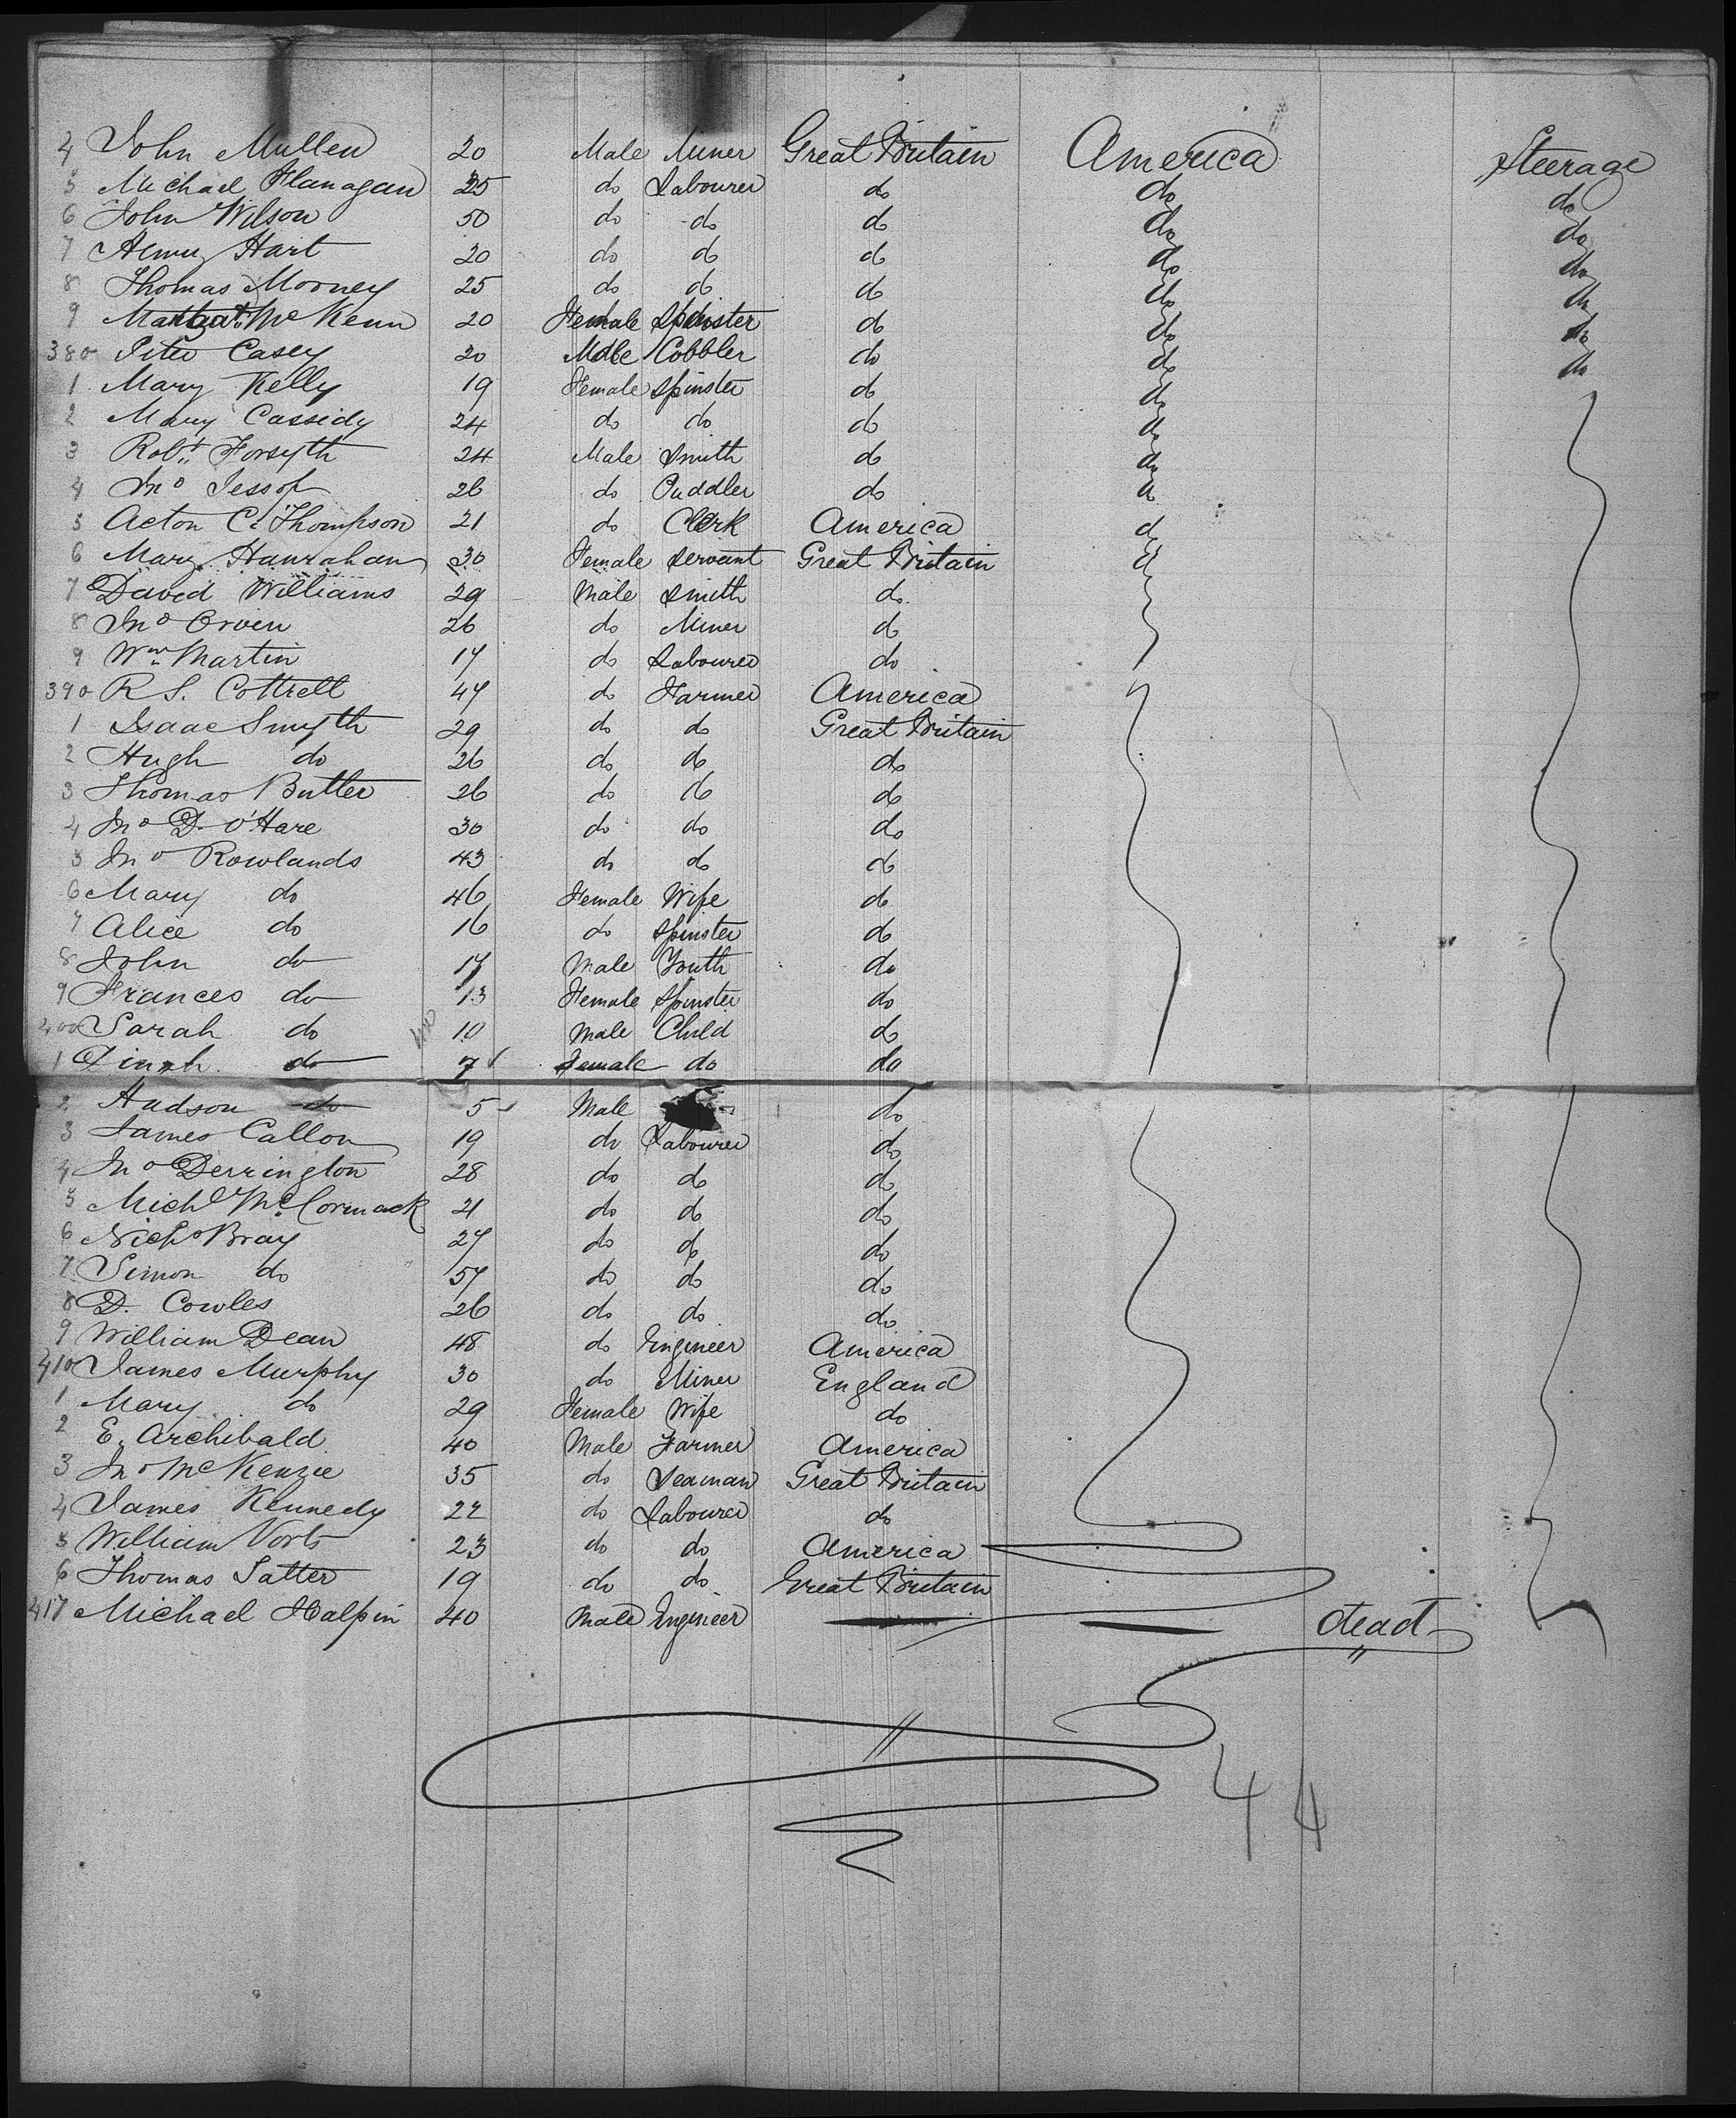 4 John Mullen 20 Male Miner Great Britain America Steerage
5 Michael Flanagan 25 do Labourer do do do
6 John Wilson 50 do do do do do
7 Henry Hart 20 do do do do do
8 Thomas Mooney 25 do do do do do
9 McKenn 20 Female Spinster do do do
380 Peter Casey 20 Male Cobbler do do do
1 Mary Kelly 19 Female Spinster do do
2 Mary Cassidy 24 do do do do
3 Robt Forsyth 24 Male Smith do do
4 Jno Jessop 26 do Puddler do do
5 Acton C. Thompson 21 do Clerk America do
6 Mary Hanrahan 30 Female Servant Great Britain do
7 David Williams 29 Male Smith do
8 Jno Orven 26 do Miner do
9 Wm Martin 17 do Labourer do
390 R S. Cottrell 47 do Farmer America
1 Isaac Smyth 29 do do Great Britain
2 Hugh do 26 do do do
3 Thomas Butler 26 do do do
4 Jno D. O'Hare 30 do do do
5 Jno Rowlands 43 do do do
6 Mary do 46 Female Wife do
7 Alice do 16 do Spinster do
8 John do 17 Male Youth do
9 Frances do 13 Female Spinster do
400 Sarah do 10 Male Child do
1 Dinah do 7 Female do do
2 Hudson do 5 Male do
3 James Callon 19 do Labourer do
4 Jno Derrington 28 do do do
5 Michl McCormack 21 do do do
6 Nichs Bray 27 do do do
7 Simon do 57 do do do
8 D. Cowles 26 do do do
9 William Dean 48 do Engineer America
410 James Murphy 30 do Miner England
1 Mary do 29 Female Wife do
2 E. Archibald 40 Male Farmer America
3 Jno McKenzie 35 do Seaman Great Britain
4 James Kennedy 22 do Labourer do
5 William Vorts 23 do do America
6 Thomas Satter 19 do do Great Britain
417 Michael Halpin 40 Male Engineer dead
44